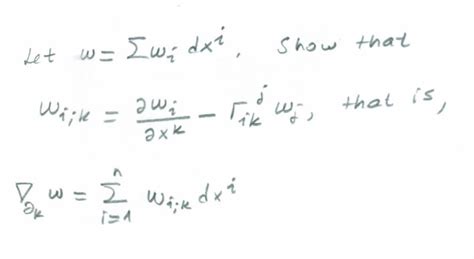 Let w = Σ w_i dx^i, show that
w_{i;k} = ∂w_i/∂x^k − Γ_{ik}^j w_j, that is,
∇_{∂_k} w = Σ_{i=1}^n w_{i;k} dx^i